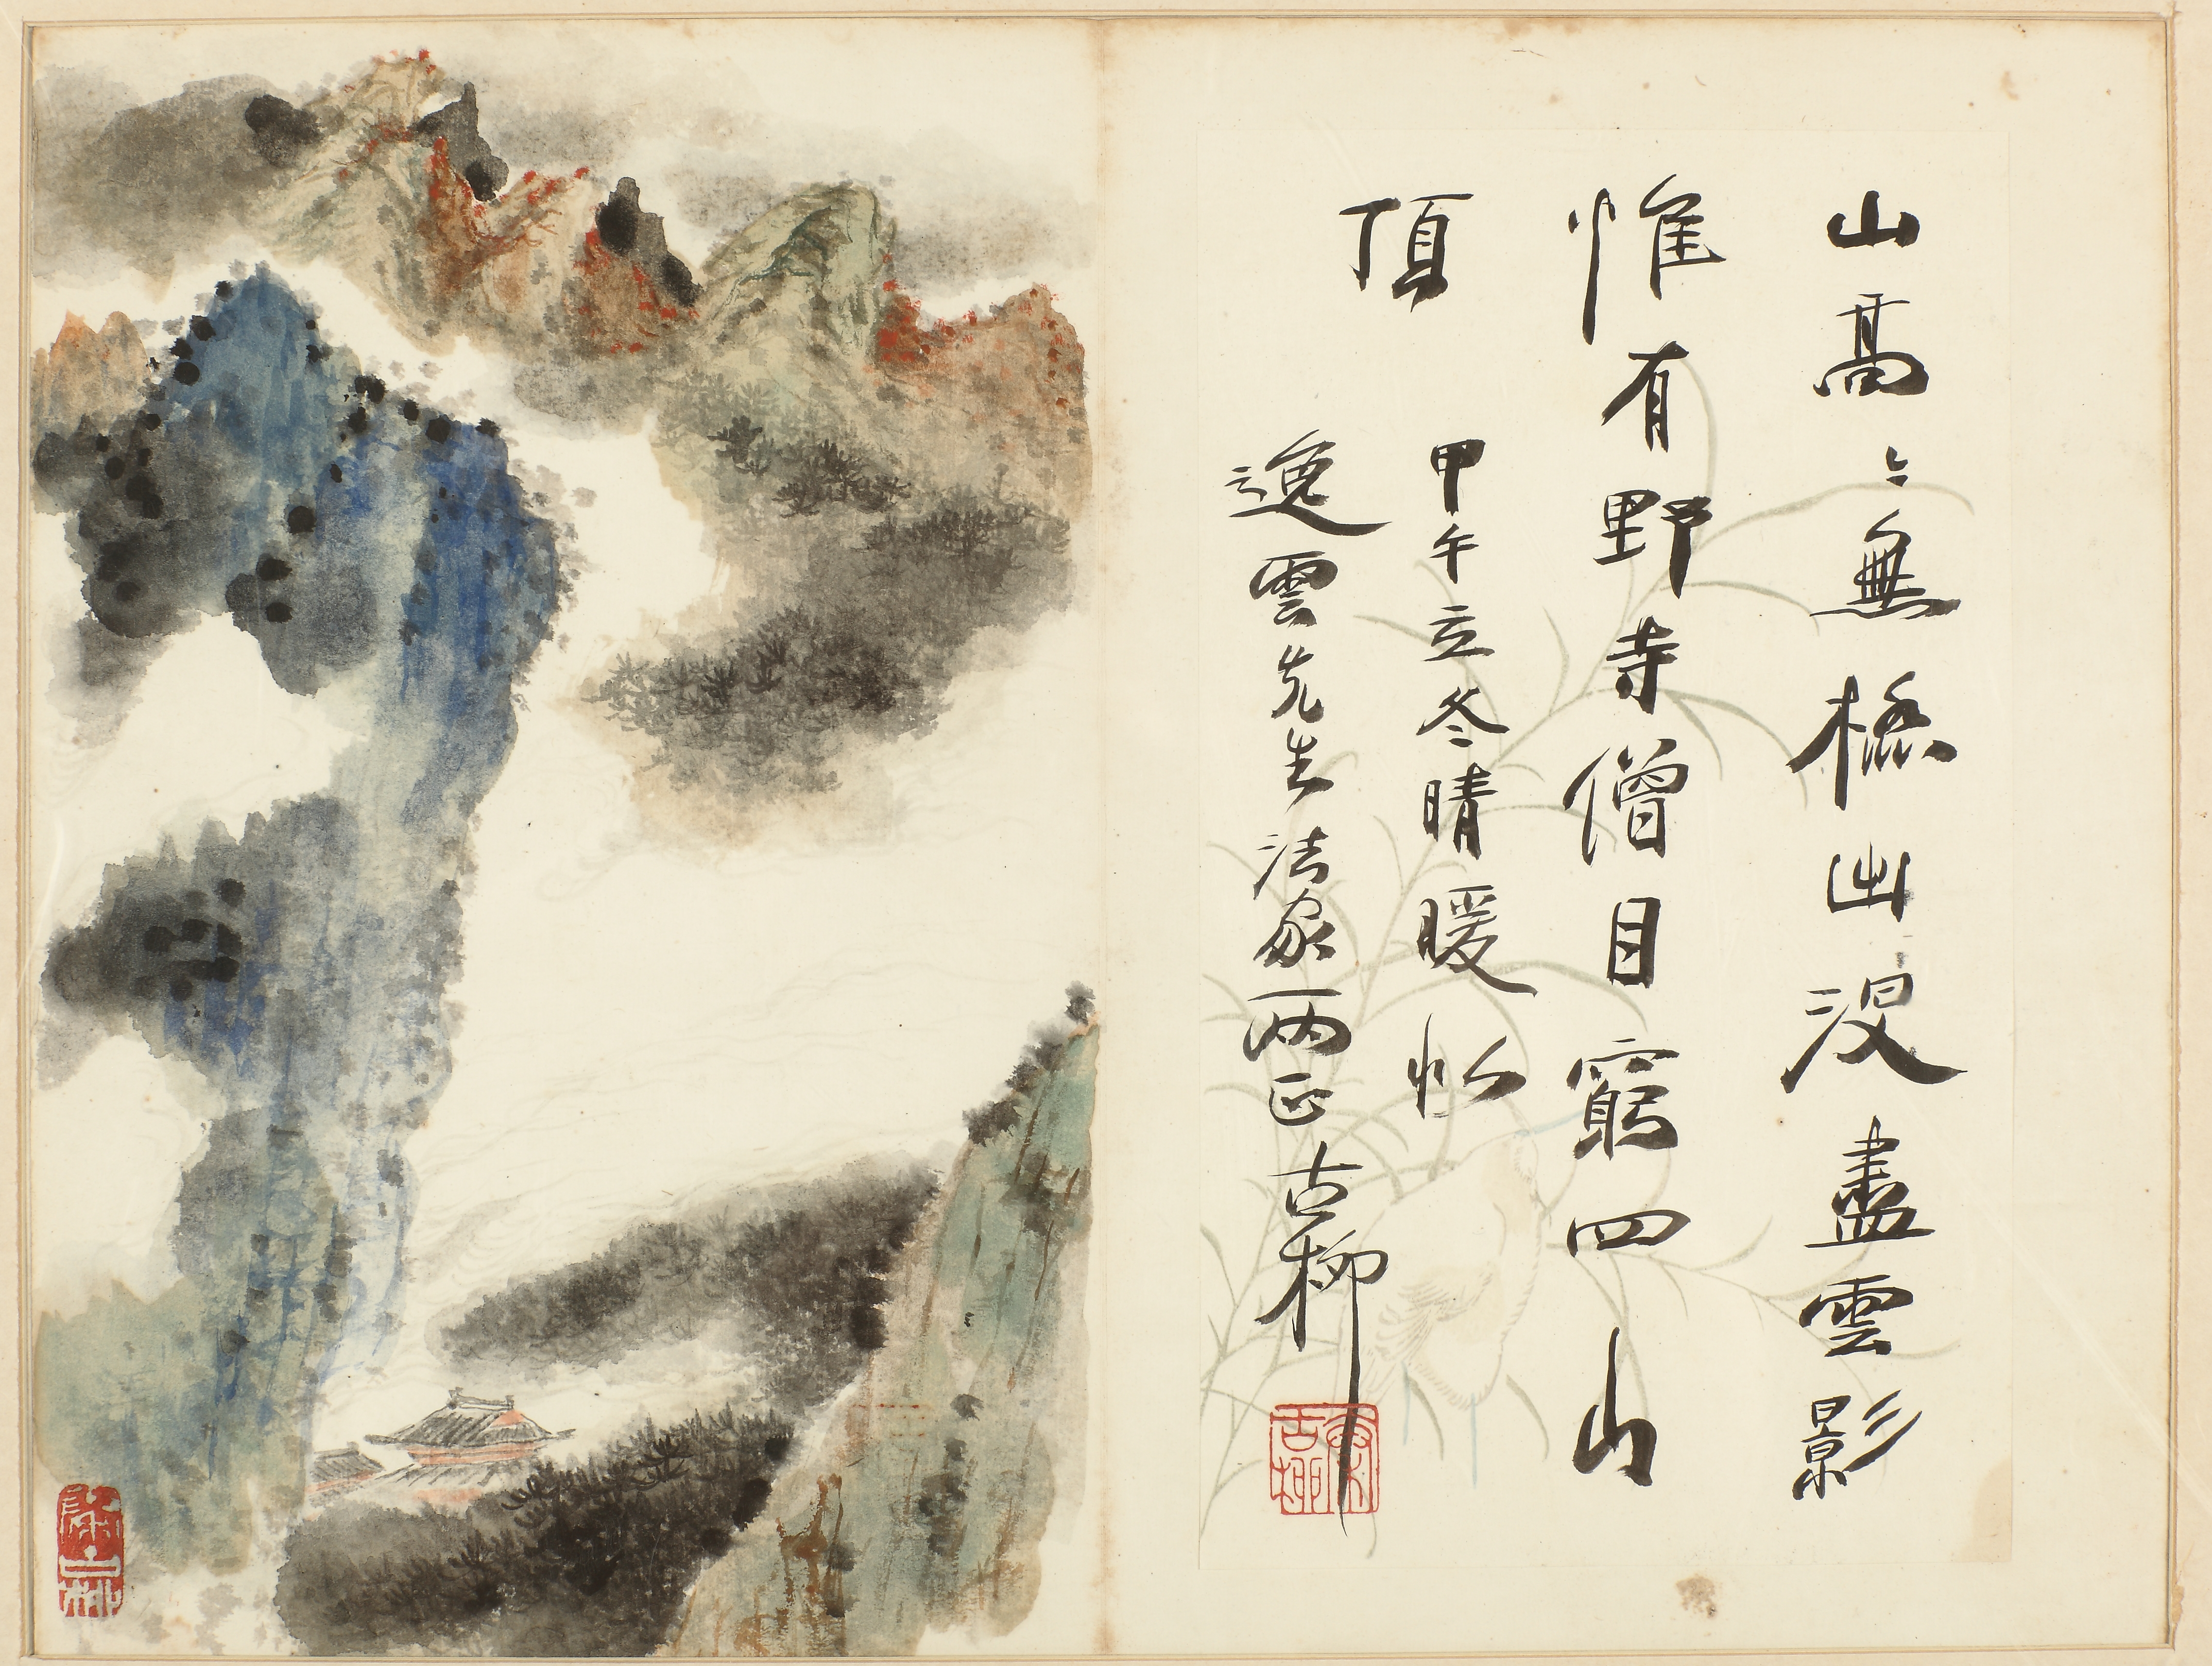 山高〻無極出没盡雲影
惟有野寺僧目窮四山
頂
甲午立冬晴暖似
逸雲先生法家两正古柳
古柳